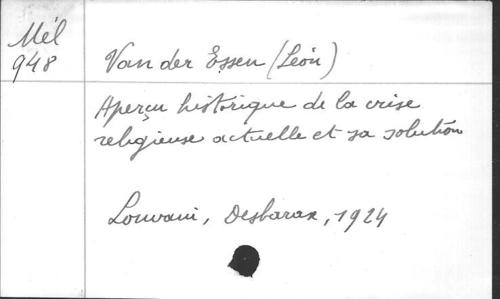 Mél
948
Van der Essen (Léon)
Aperçu historique de la crise
religieuse actuelle et sa solution
Louvain, Desbarax, 1924